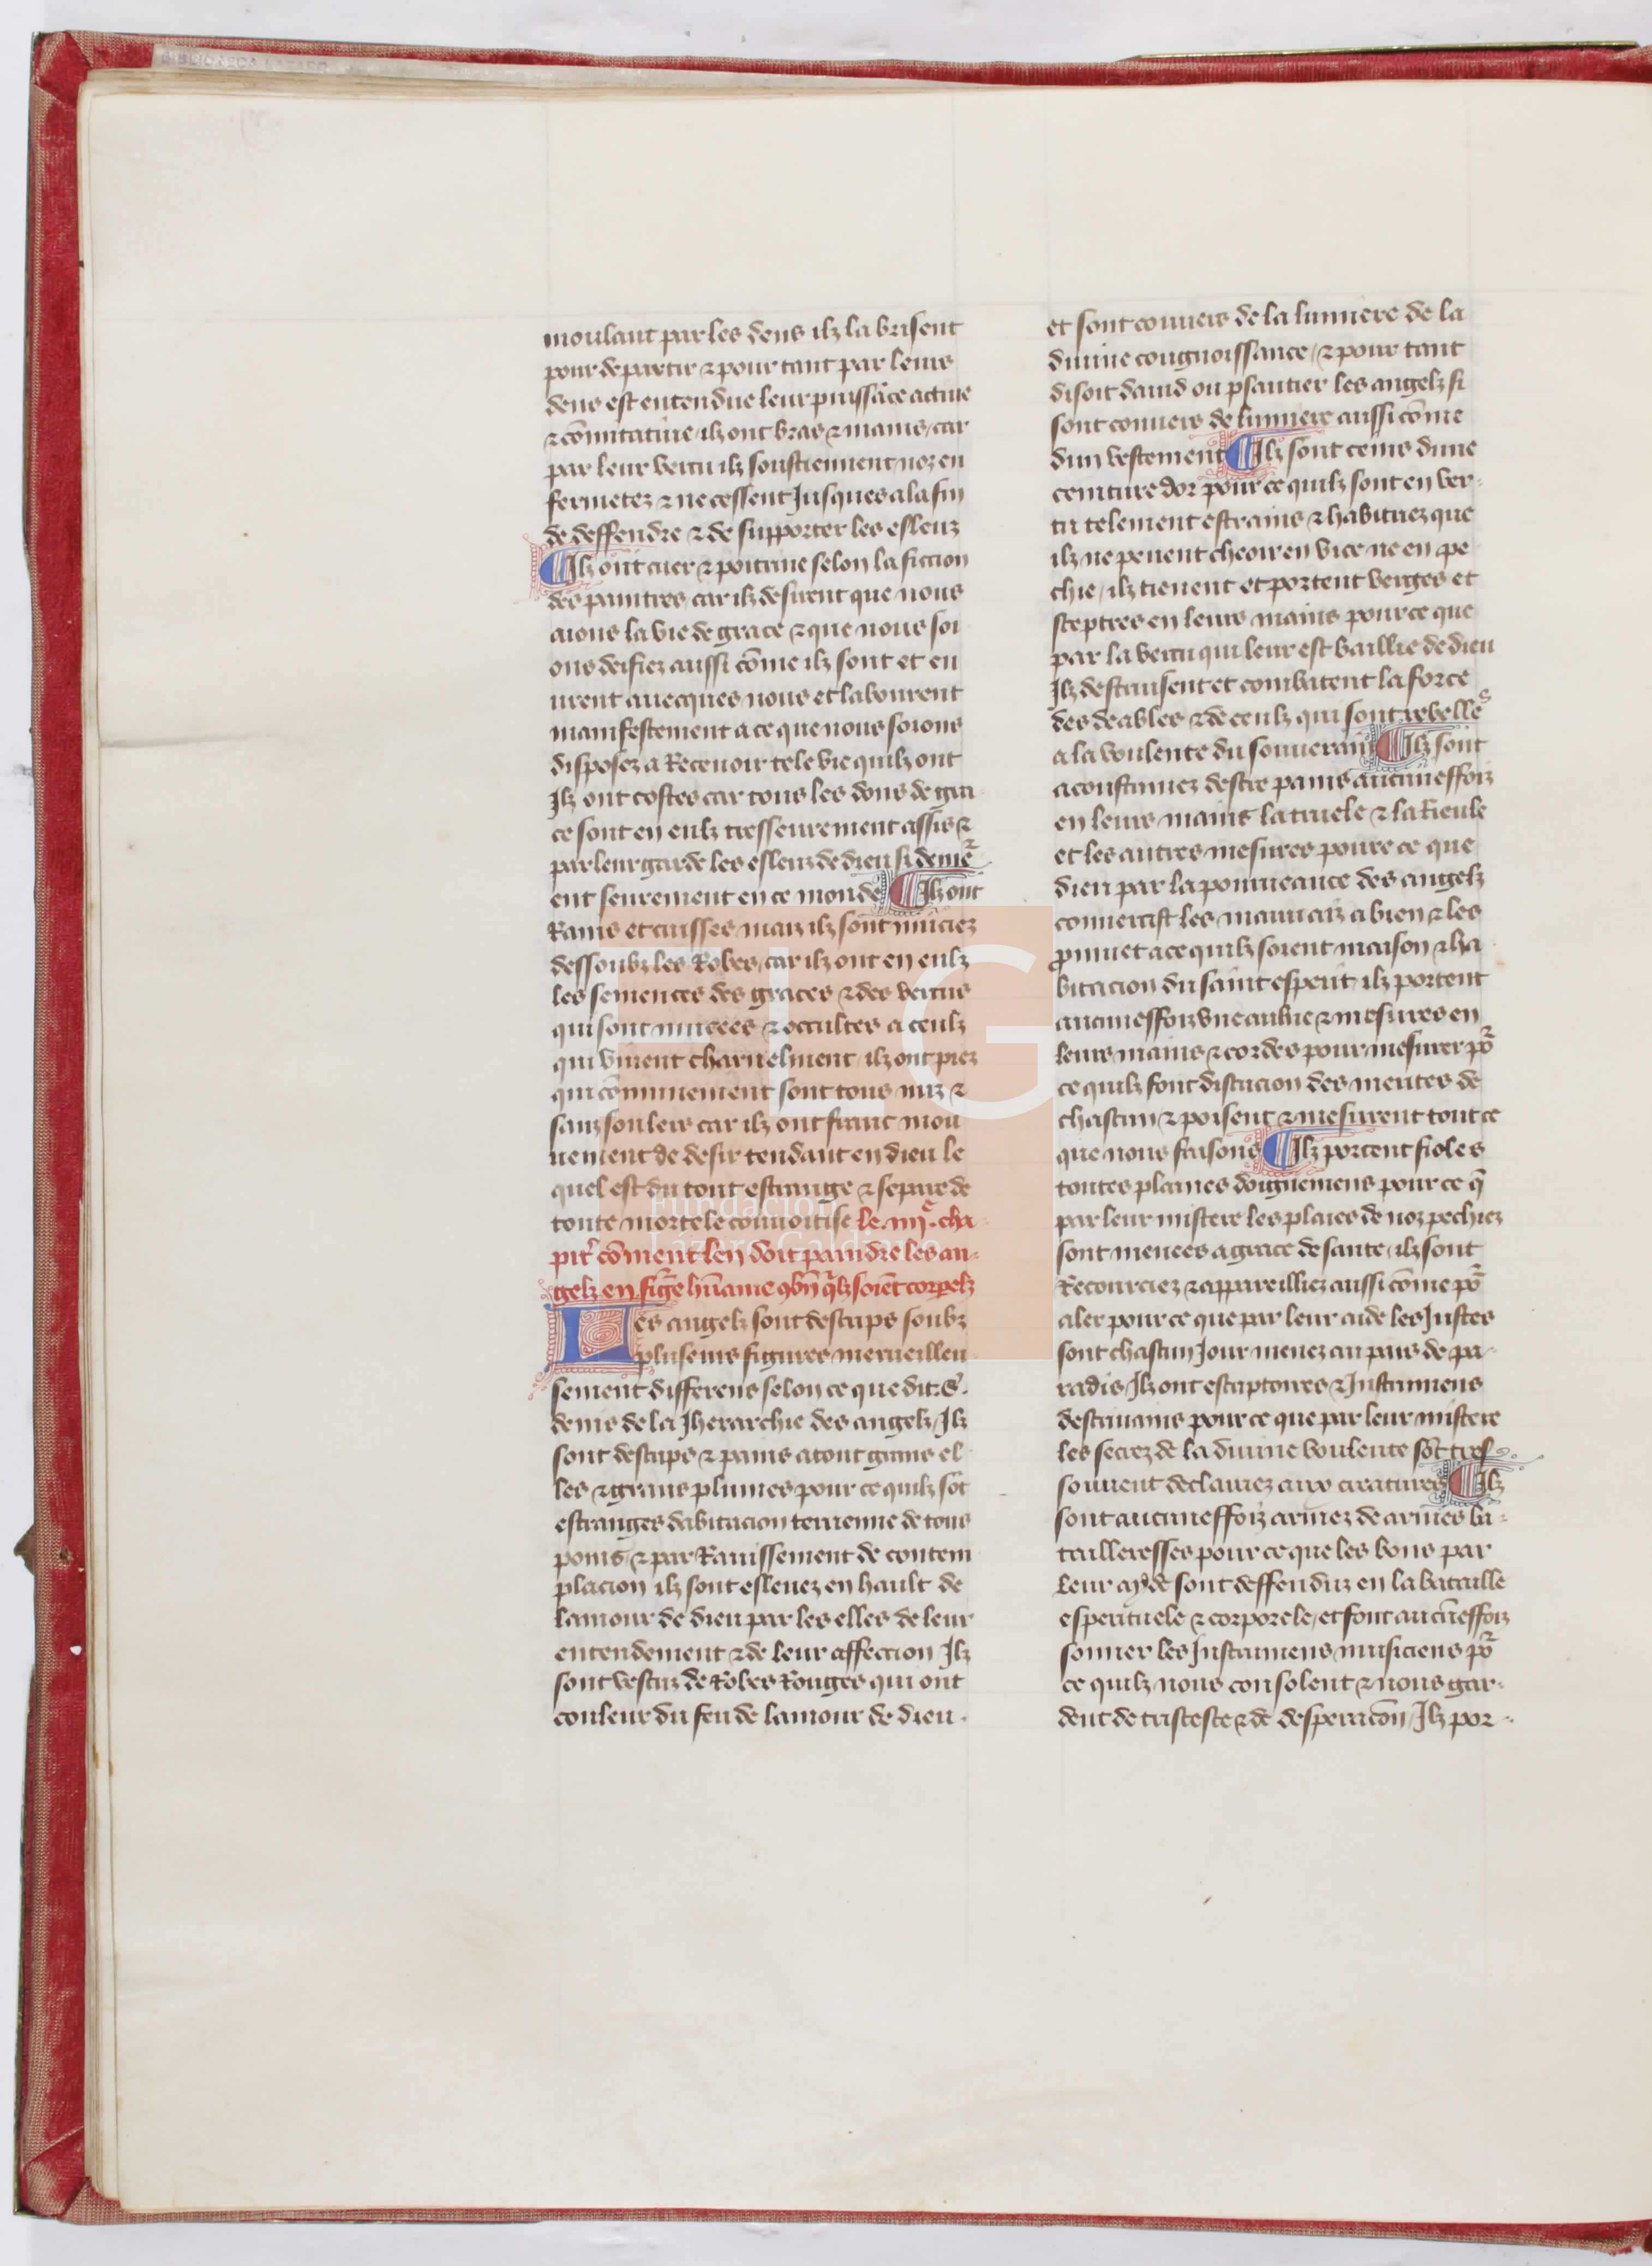 BIBLIOTECA LAZARO
moulant par les dens ilz la brisent
pour departir ⁊ pour tant par leurs
dens est entendue leur puissāce actiue
⁊ cōmitatiue / ilz ont bras ⁊ mains / car
par leur vertu ilz soustiennent noz en
fermetez ⁊ ne cessent Jusques a la fin
de deffendre ⁊ de supporter les esleuz
¶ Ilz ont cuer ⁊ poitrine selon la fiction
des paintres car ilz desirent que nous
aions la vie de grace ⁊ que nous soi
ons deifiez aussi cōme ilz sont et eu
urent auecques nous et labourent
manifestement a ce que nous soions
disposez a Receuoir tele vie quilz ont
Ilz ont costes car tous les dons de gra
ce sont en eulz tresseurement assis ⁊
par leur garde les esleuz de dieu si demēr
ent seurement en ce monde ¶ Ilz ont
Rains et cuisses maiz ilz sont muciez
dessoubz les Robes / car ilz ont en eulz
les semences des graces ⁊ des vertus
qui sont mucees ⁊ occultes a ceulz
qui viuent charnelment / ilz ont piez
qui cōmunement sont tous nuz ⁊
sanz soulers car ilz ont franc mou
uement de desir tendant en dieu le
quel est du tout estrange ⁊ separe de
toute mortele couuoitise le .iiijᵉ. cha
pitᵉ cōment len doit paindre les an-
gelz en figᵉe hūaine qbn̄ qlz soiēt corpelz
Les angelz sont descrips soubz
pluseurs figures merueilleu
sement differens selon ce que dit .S.
denis de la Jherarchie des angelz / Ilz
sont descrips ⁊ pains a tout grans el
les ⁊ grans plumes pour ce quilz sōt
estranges dabitacion terrienne de tous
poins / ⁊ par Rauissement de contem
placion ilz sont esleuez en hault de
lamour de dieu par les elles de leur
entendement ⁊ de leur affection Ilz
sont vestuz de Robes Rouges qui ont
couleur du feu de lamour de dieu .
et sont couuers de la lumiere de la
diuine congnoissance / ⁊ pour tant
disoit dauid ou psautier les angelz si
sont couuers de lumiere aussi cōme
dun vestement ¶ Ilz sont ceins dune
ceinture dor pour ce quilz sont en ver-
tu telement estrains ⁊ habituez que
ilz ne peuent cheoir en vice ne en pe
chie / ilz tienent et portent verges et
sceptres en leurs mains pour ce que
par la vertu qui leur est baillie de dieu
Ilz destruisent et combatent la force
des deables ⁊ de ceulz qui sont rebelles
a la voulente du souuerain ¶ Ilz sont
acoustumez destre pains aucuneffoiz
en leurs mains la truele ⁊ la Rieule
et les autres mesures pource ce que
dieu par la pourueance des angelz
conuertist les mauuaiz a bien ⁊ les
promuet a ce quilz soient maison ⁊ ha
bitacion du saint esperit / ilz portent
aucuneffoiz vne aulne ⁊ mesures en
leurs mains ⁊ cordes pour mesurer pōr
ce quilz font discucion des merites de
chascun ⁊ poisent ⁊ mesurent tout ce
que nous faisons ¶ Ilz portent fioles
toutes plaines doignemens pour ce q̄
par leur mistere les plaies de noz pechiez
sont menees a grace de sante / ilz sont
Recourciez ⁊ appareilliez aussi cōme pōr
aler pour ce que par leur aide les Justes
sont chascun Jour menez au pais de pa-
radis Ilz ont escriptoires ⁊ Instrumens
descriuains pour ce que par leur mistere
les secrez de la diuine voulente sōt tres
souuent declairiez aux creatures ¶ Ilz
sont aucuneffoiz armez de armes ba-
tailleresses pour ce que les bons par
leur ayde sont deffenduz en la bataille
esperituele ⁊ corporele / et font aucūeffoiz
sonner les Instrumens musiciens pōr
ce quilz nous consolent ⁊ nous gar-
dent de tristeste ⁊ de desperacōn / Ilz por-
FLG
Fundación
Lázaro Galdiano